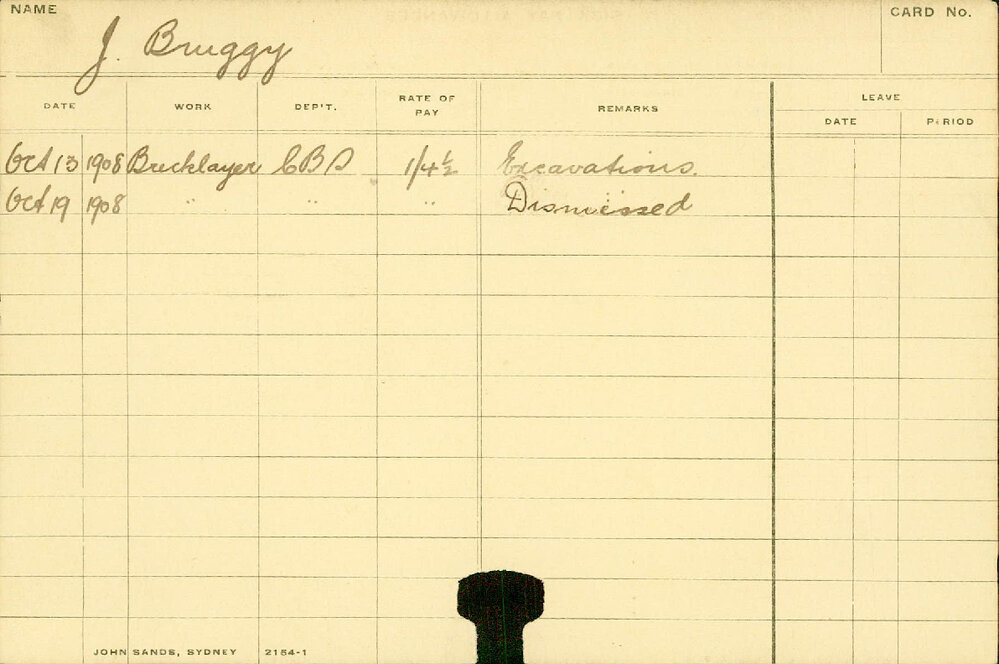 NAME
J. Bruggy
CARD No.
DATE WORK DEP'T. RATE OF PAY REMARKS LEAVE
DATE PERIOD
Oct 13 1908 Bricklayer CBS 1/4½ Excavations.
Oct 19 1908 " " " Dismissed
JOHN SANDS, SYDNEY 2154-1